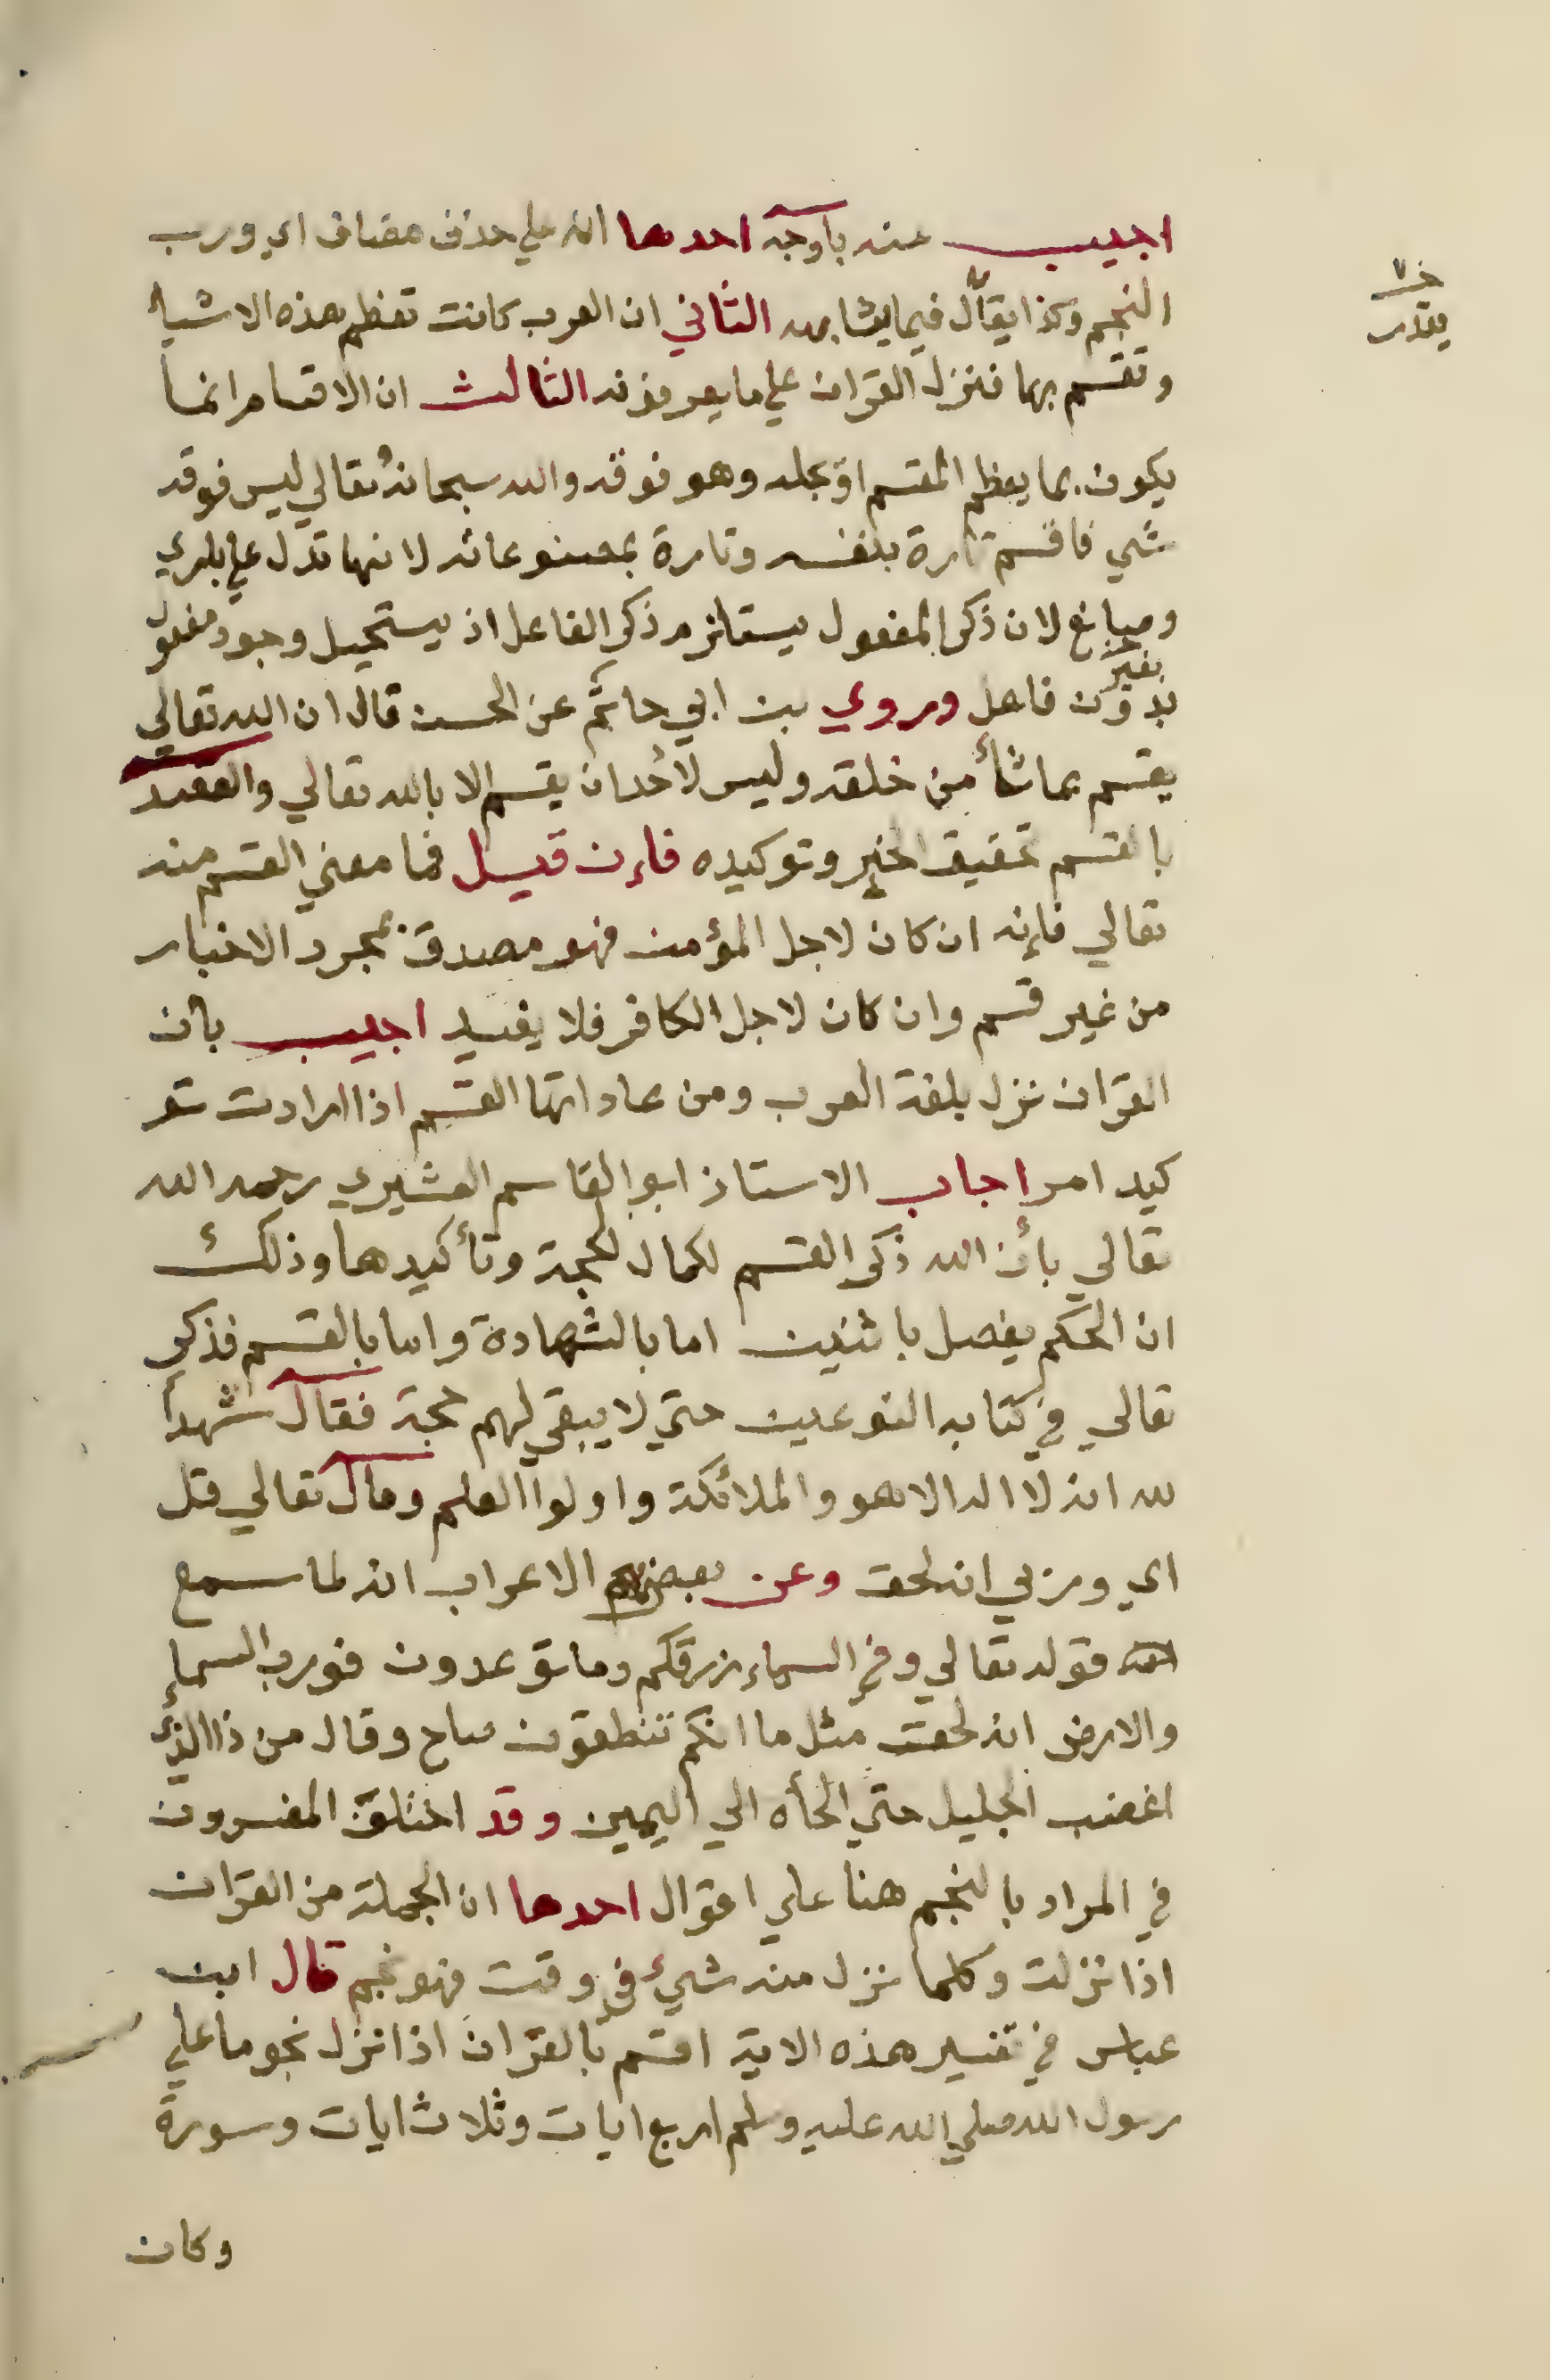 اجيب عنه بأوجه احدها انه علي حذف مضاف اي ورب
النجم وكذا يقال فيما يشابهه الثاني ان العرب كانت تعظم هذه الاشيأ
وتقسم بها فنزل القرآن علي ما يعرفونه الثالث ان الاقسام انما
يكون بما يعظم المقسم او يجله وهو فوقه والله سبحانه وتعالي ليس فوقه
شي فاقسم تارة بنفسه وتارة بمصنوعاته لانها تدل علي باري
وصانع لان ذكر المفعول يستلزم ذكر الفاعل اذ يستحيل وجود مفعول
بغير
بدون فاعل وروي بن ابي حاتم عن الحسن قال ان الله تعالي
يقسم بما شأ من خلقه وليس لأحد ان يقسم الا بالله تعالي والقصد
بالقسم تحقيق الخبر وتوكيده فإن قيل فما معني القسم منه
تعالي فإنه ان كان لاجل المؤمن فهو مصدق بمجرد الاخبار
من غير قسم وان كان لاجل الكافر فلا يفيد اجيب بأن
القرآن نزل بلغة العرب ومن عاداتها القسم اذا ارادت تو
كيد امر اجاب الاستاذ ابو القاسم القشيري رحمه الله
تعالي بأن الله ذكر القسم لكمال الحجة وتأكيدها وذلك
ان الحكم يفصل باثنين اما بالشهادة واما بالقسم فذكر
تعالي في كتابه النوعين حتي لا يبقي لهم حجة فقال شهدا
لله انه لا اله الا هو والملائكة واولوا العلم وقال تعالي قل
اي وربي انه لحق وعن بعض الاعراب انه لما سمع
قوله تعالي وفي السماء رزقكم وما توعدون فورب السماء
والارض انه لحق مثل ما انكم تنطقون صاح وقال من ذا الذي
اغضب الجليل حتي الجأه الي اليمين وقد اختلف المفسرون
في المراد بالنجم هنا علي اقوال احدها ان الجملة من القرآن
اذا نزلت وكلما نزل منه شيء في وقت فهو نجم قال ابن
عباس في تفسير هذه الاية اقسم بالقرآن اذا نزل نجوما علي
رسول الله صلي الله عليه وسلم اربع ايات وثلاث ايات وسورة
وكان
يقدر